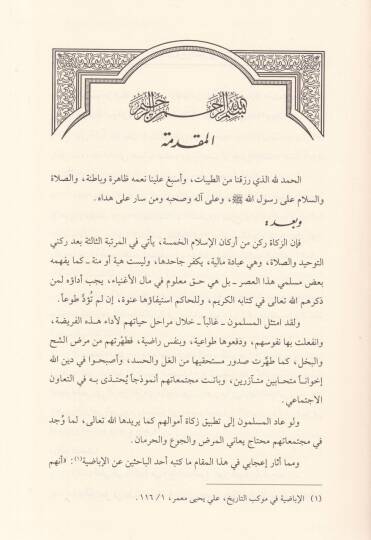 بسم الله الرحمن الرحيم
المقدمة
الحمد لله الذي رزقنا من الطيبات، وأسبغ علينا نعمه ظاهرة وباطنة، والصلاة
والسلام على رسول الله ﷺ، وعلى آله وصحبه ومن سار على هداه.
وبعد:
فإن الزكاة ركن من أركان الإسلام الخمسة، يأتي في المرتبة الثالثة بعد ركني
التوحيد والصلاة، وهي عبادة مالية، يكفر جاحدها، وليست هبة أو منة ـ كما يفهمه
بعض مسلمي هذا العصر ـ بل هي حق معلوم في مال الأغنياء، يجب أداؤه لمن
ذكرهم الله تعالى في كتابه الكريم، وللحاكم استيفاؤها عنوة، إن لم تُؤدَّ طوعاً.
ولقد امتثل المسلمون ـ غالباً ـ خلال مراحل حياتهم لأداء هذه الفريضة،
وانفعلت بها نفوسهم، ودفعوها طواعية، وبنفس راضية، فطهّرتهم من مرض الشح
والبخل، كما طهّرت صدور مستحقيها من الغل والحسد، وأصبحوا في دين الله
إخواناً متحابين متآزرين، وباتت مجتمعاتهم أنموذجاً يُحتذى به في التعاون
الاجتماعي.
ولو عاد المسلمون إلى تطبيق زكاة أموالهم كما يريدها الله تعالى، لما وُجد
في مجتمعاتهم محتاج يعاني المرض والجوع والحرمان.
ومما أثار إعجابي في هذا المقام ما كتبه أحد الباحثين عن الإباضية(١): «أنهم
(١) الإباضية في موكب التاريخ، علي يحيى معمر، ١/ ١١٦.